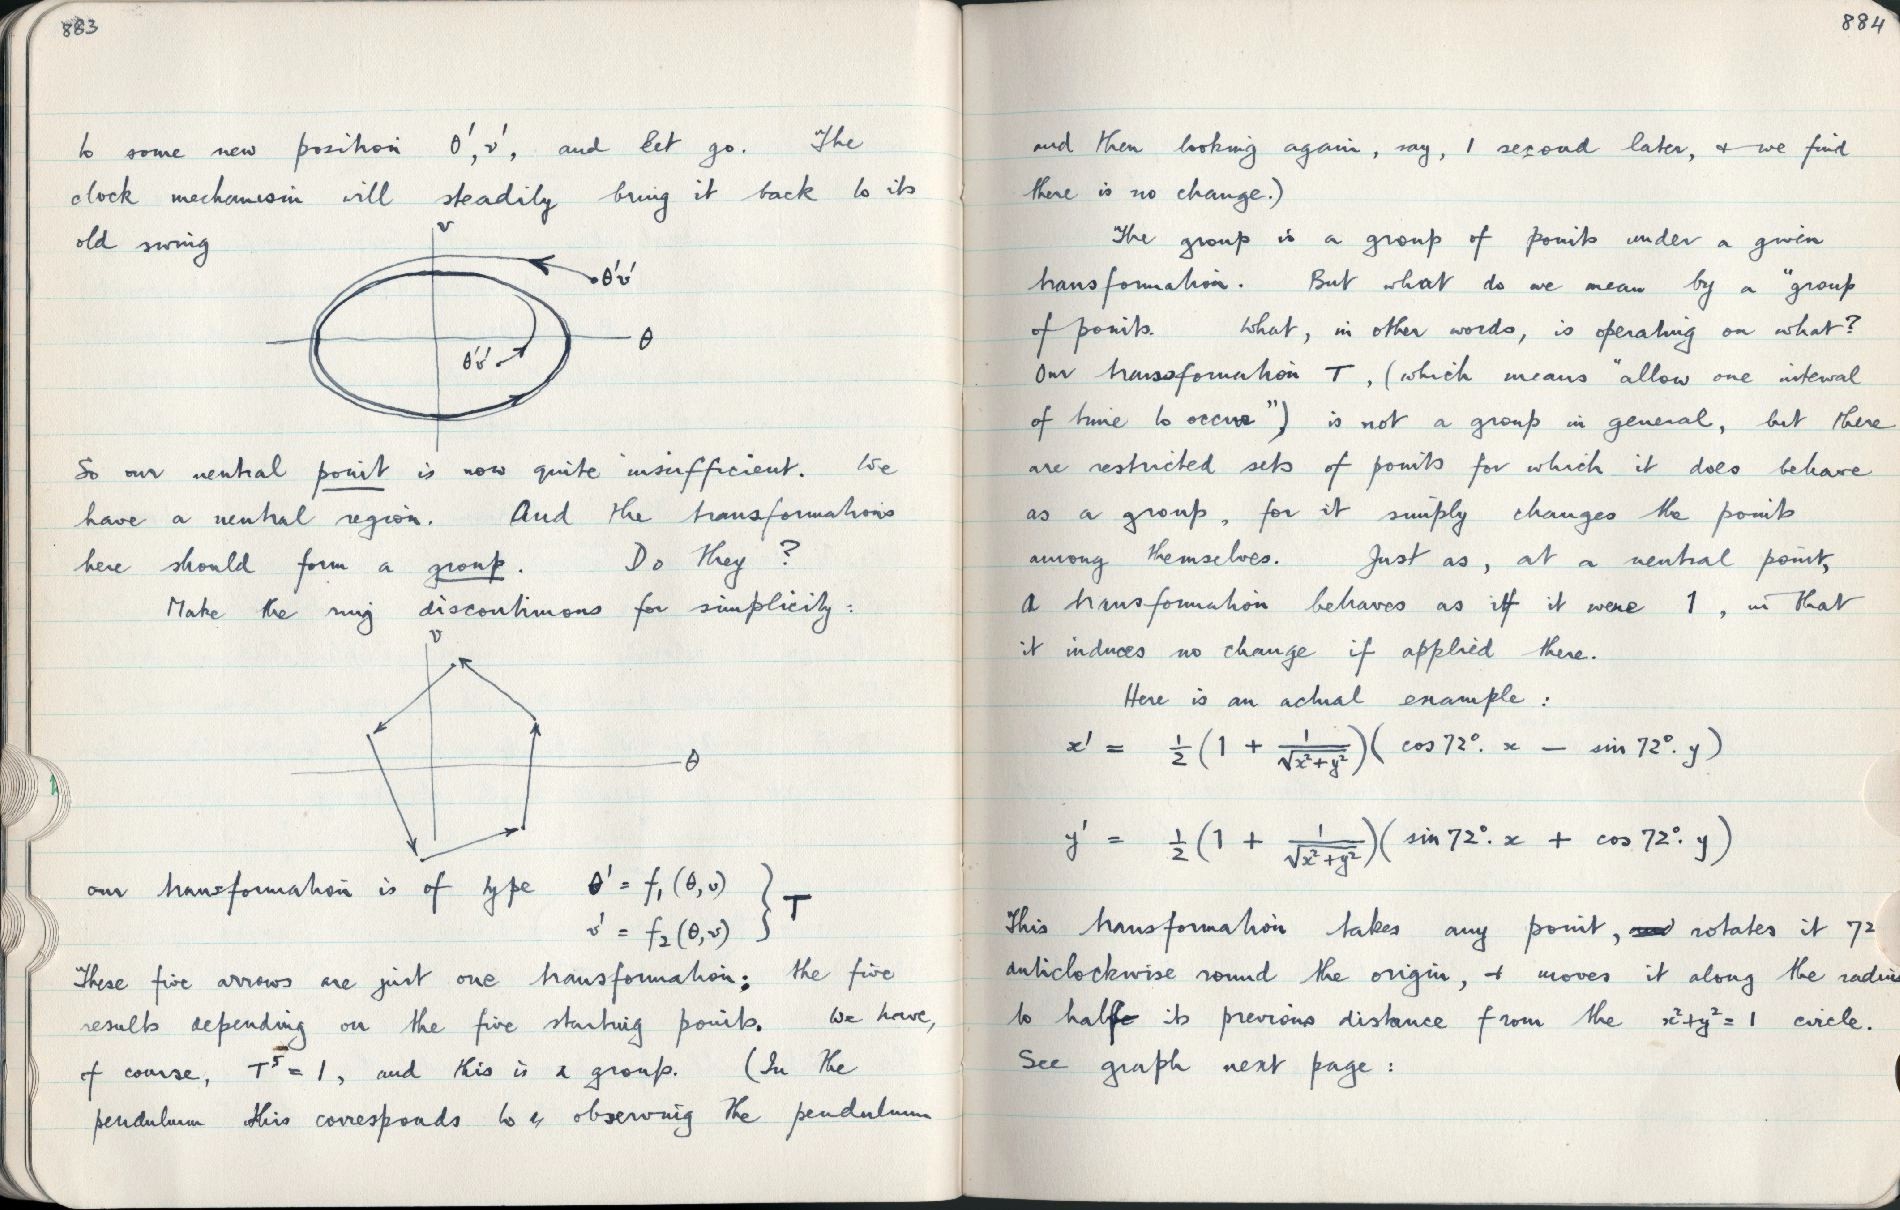 883
to some new position θ', v', and let go. The
clock mechanism will steadily bring it back to its
old swing
v
θ'v'
θ
θ'v'
So our neutral point is now quite insufficient. We
have a neutral region. And the transformations
here should form a group. Do they?
Make the ring discontinuous for simplicity:
v
θ
our transformation is of type θ' = f₁(θ,v)
v' = f₂(θ,v) } T
These five arrows are just one transformation; the five
results depending on the five starting points. We have,
of course, T⁵ = 1, and this is a group. (In the
pendulum this corresponds to observing the pendulum
884
and then looking again, say, 1 second later, & we find
there is no change.)
The group is a group of points under a given
transformation. But what do we mean by a "group
of points. What, in other words, is operating on what?
Our transformation T, (which means "allow one interval
of time to occur") is not a group in general, but there
are restricted sets of points for which it does behave
as a group, for it simply changes the points
among themselves. Just as, at a neutral point,
a transformation behaves as if it were 1, in that
it induces no change if applied there.
Here is an actual example:
x' = ½(1 + 1/√(x²+y²))(cos 72°. x − sin 72°. y)
y' = ½(1 + 1/√(x²+y²))(sin 72°. x + cos 72°. y)
This transformation takes any point, rotates it 72
anticlockwise round the origin, & moves it along the radius
to half its previous distance from the x²+y² = 1 circle.
See graph next page: